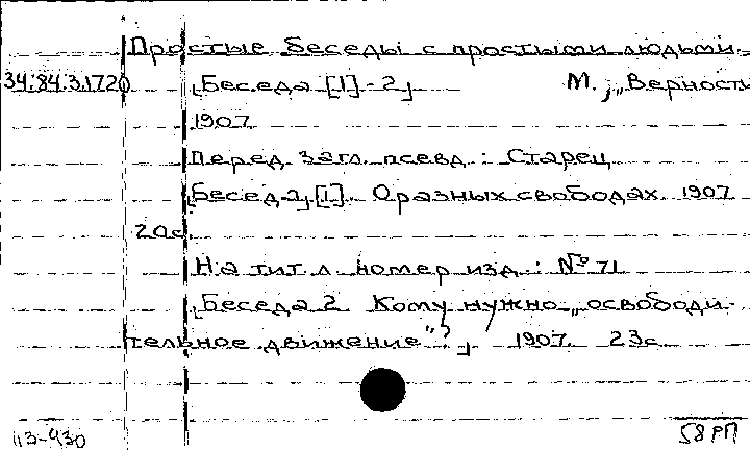 Простые беседы с простыми людьми.
34.84.3.1720 [Беседа [1]-2] М., „Верность
1907
Перед загл. псевд.: Старец
[Беседа] [1]. О разных свободах. 1907
20с.
На тит. л. номер изд.: № 71
[Беседа 2. Кому нужно „освободи-
тельное движение"?] 1907. 23с
113-930 58 РП